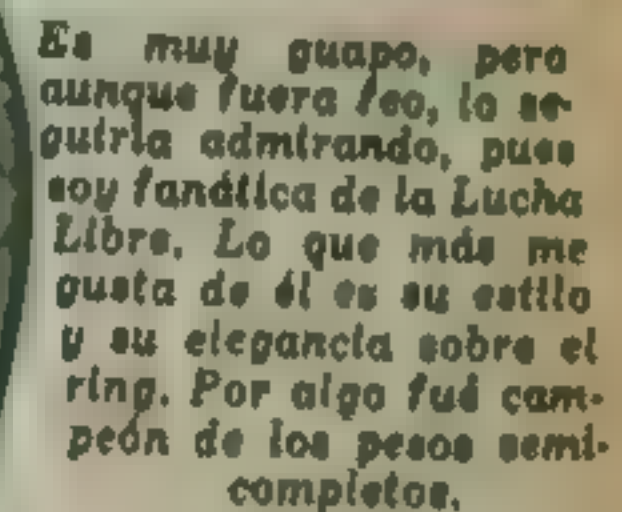 Es muy guapo, pero
aunque fuera feo, lo se-
guiría admirando, pues
soy fanática de la Lucha
Libre. Lo que más me
gusta de él es su estilo
y su elegancia sobre el
ring. Por algo fué cam-
peón de los pesos semi-
completos.